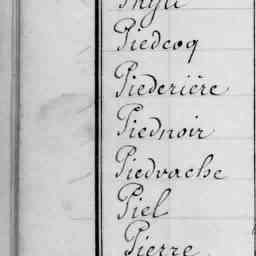 Piedcoq
Piederière
Piednoir
Piedvache
Piel
Pierre